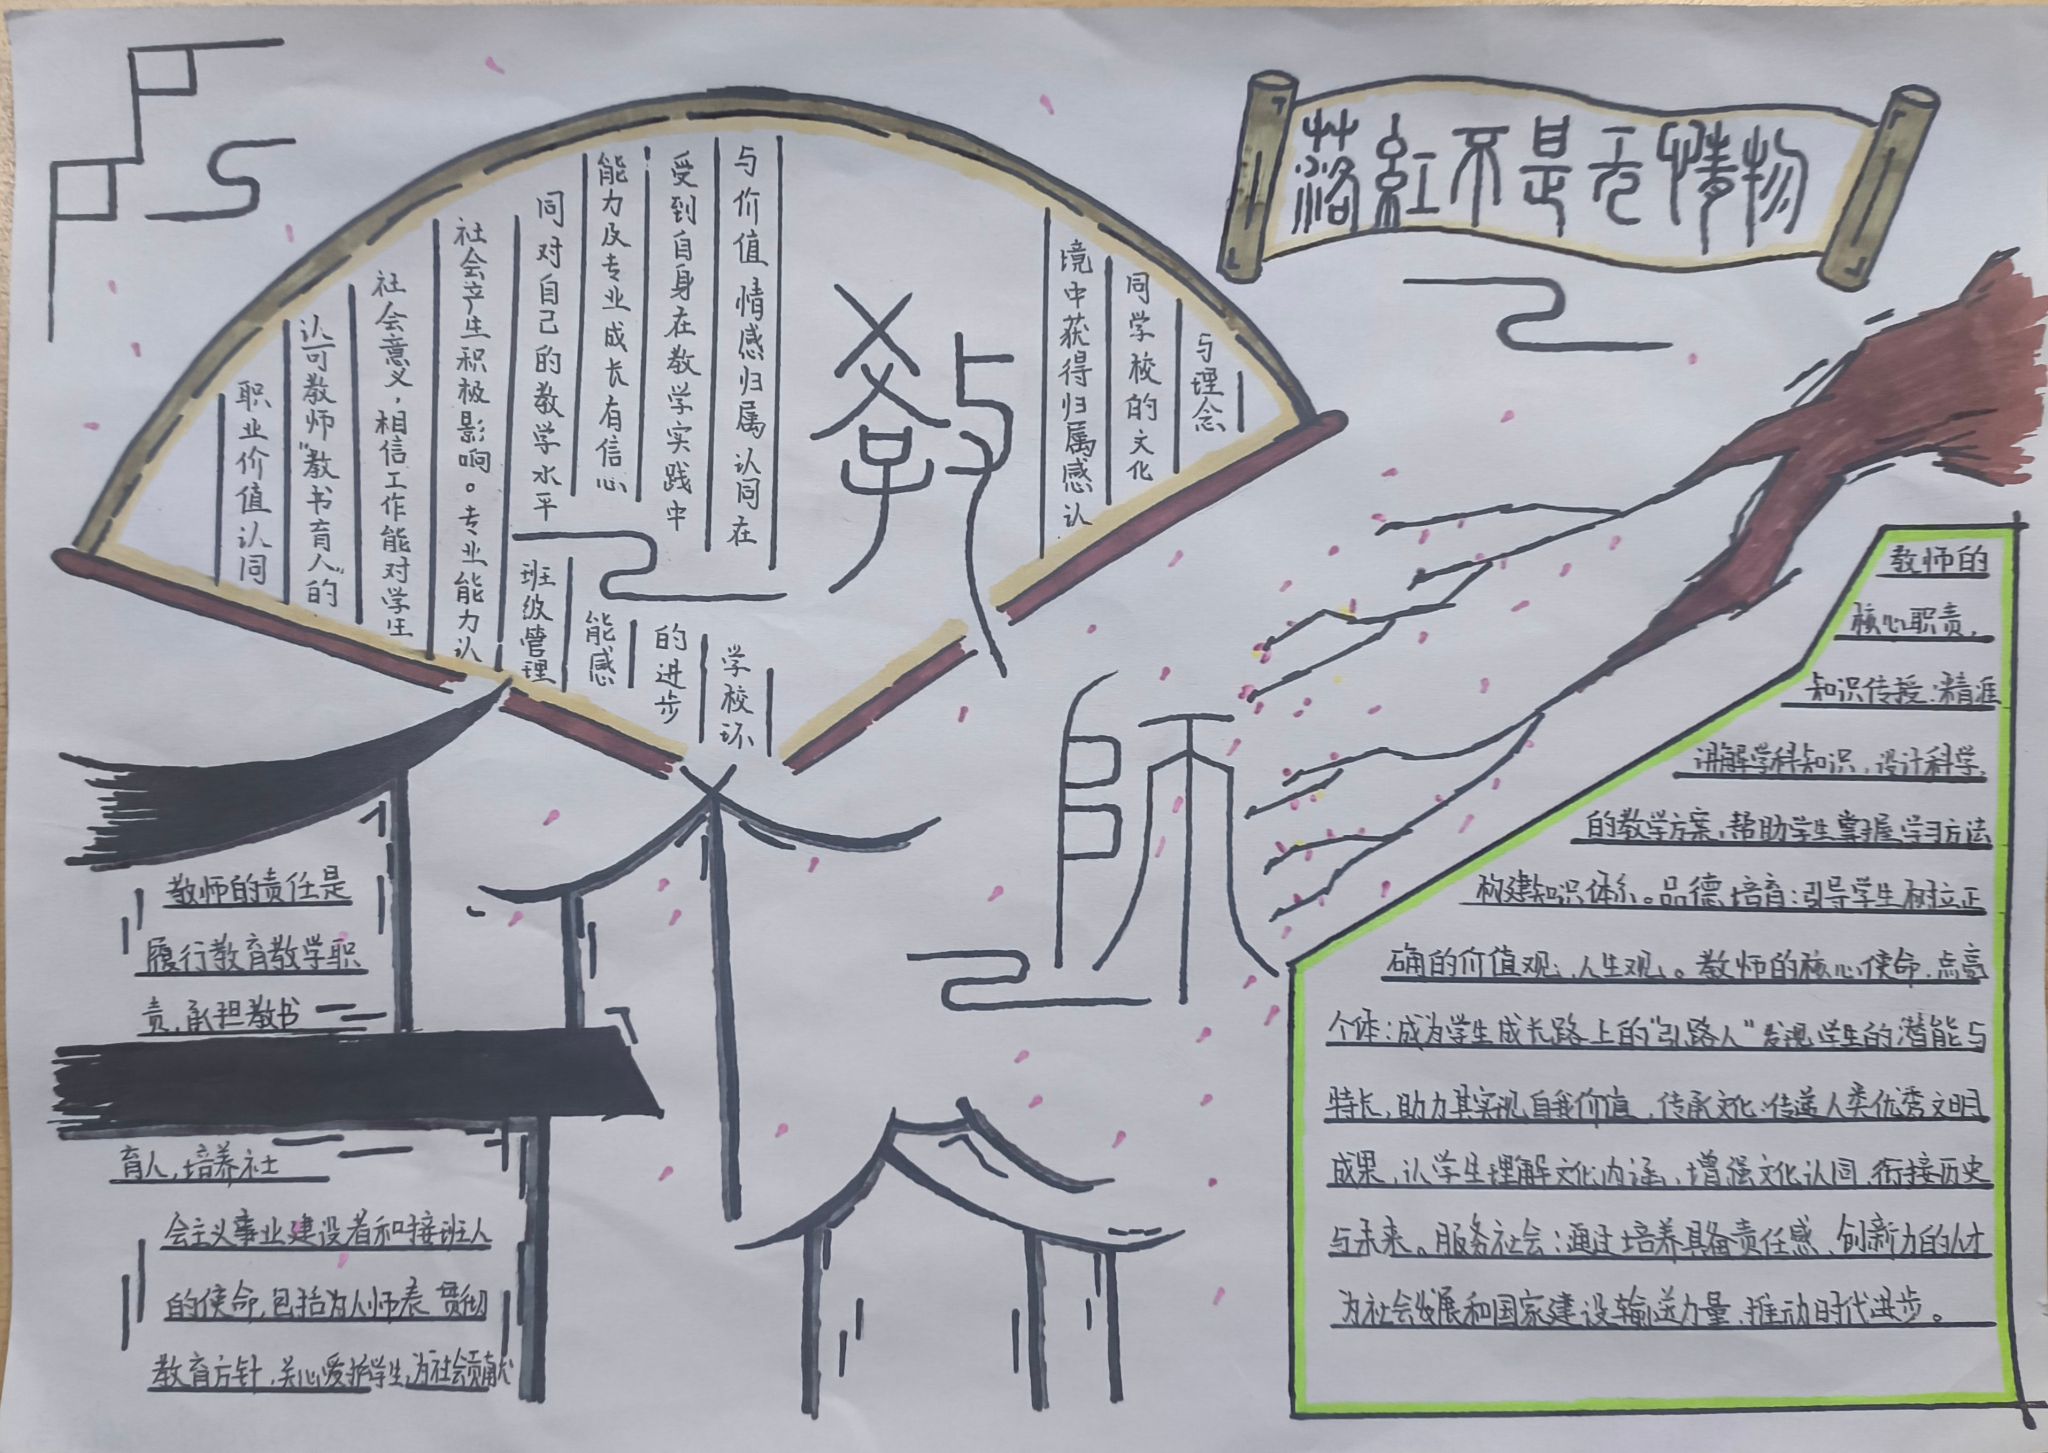 落紅不是无情物
职业价值认同
认可教师“教书育人”的
社会意义，相信工作能对学生
社会产生积极影响。专业能力认
同对自己的教学水平
班级管理
能力及专业成长有信心
能感
受到自身在教学实践中
的进步
与价值 情感归属认同在
学校环
境中获得归属感认
同学校的文化
与理念
教
師
教师的责任是
履行教育教学职
责，承担教书
育人，培养社
会主义事业建设者和接班人
的使命，包括为人师表 贯彻
教育方针，关心爱护学生，为社会贡献
教师的
核心职责，
知识传授：精准
讲解学科知识，设计科学
的教学方案，帮助学生掌握学习方法
构建知识体系。品德培育：引导学生树立正
确的价值观，人生观。教师的核心使命，点亮
个体：成为学生成长路上的“引路人”发现学生的潜能与
特长，助力其实现自我价值，传承文化：传递人类优秀文明
成果，让学生理解文化内涵，增强文化认同，衔接历史
与未来。服务社会：通过培养具备责任感、创新力的人才
为社会发展和国家建设输送力量，推动时代进步。